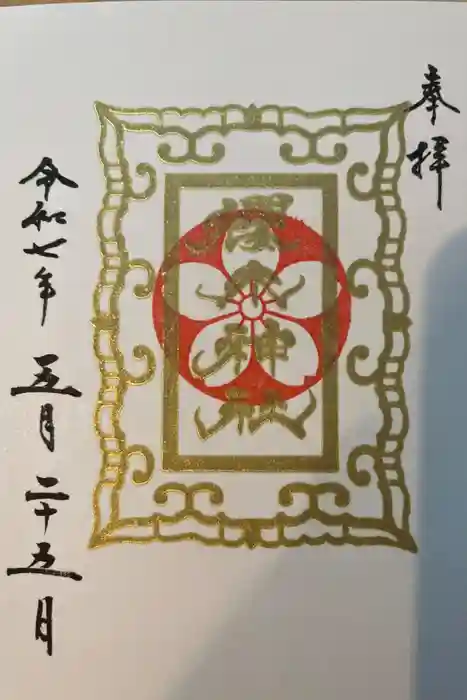 奉拝
櫻木神社
令和七年 五月 二十五月